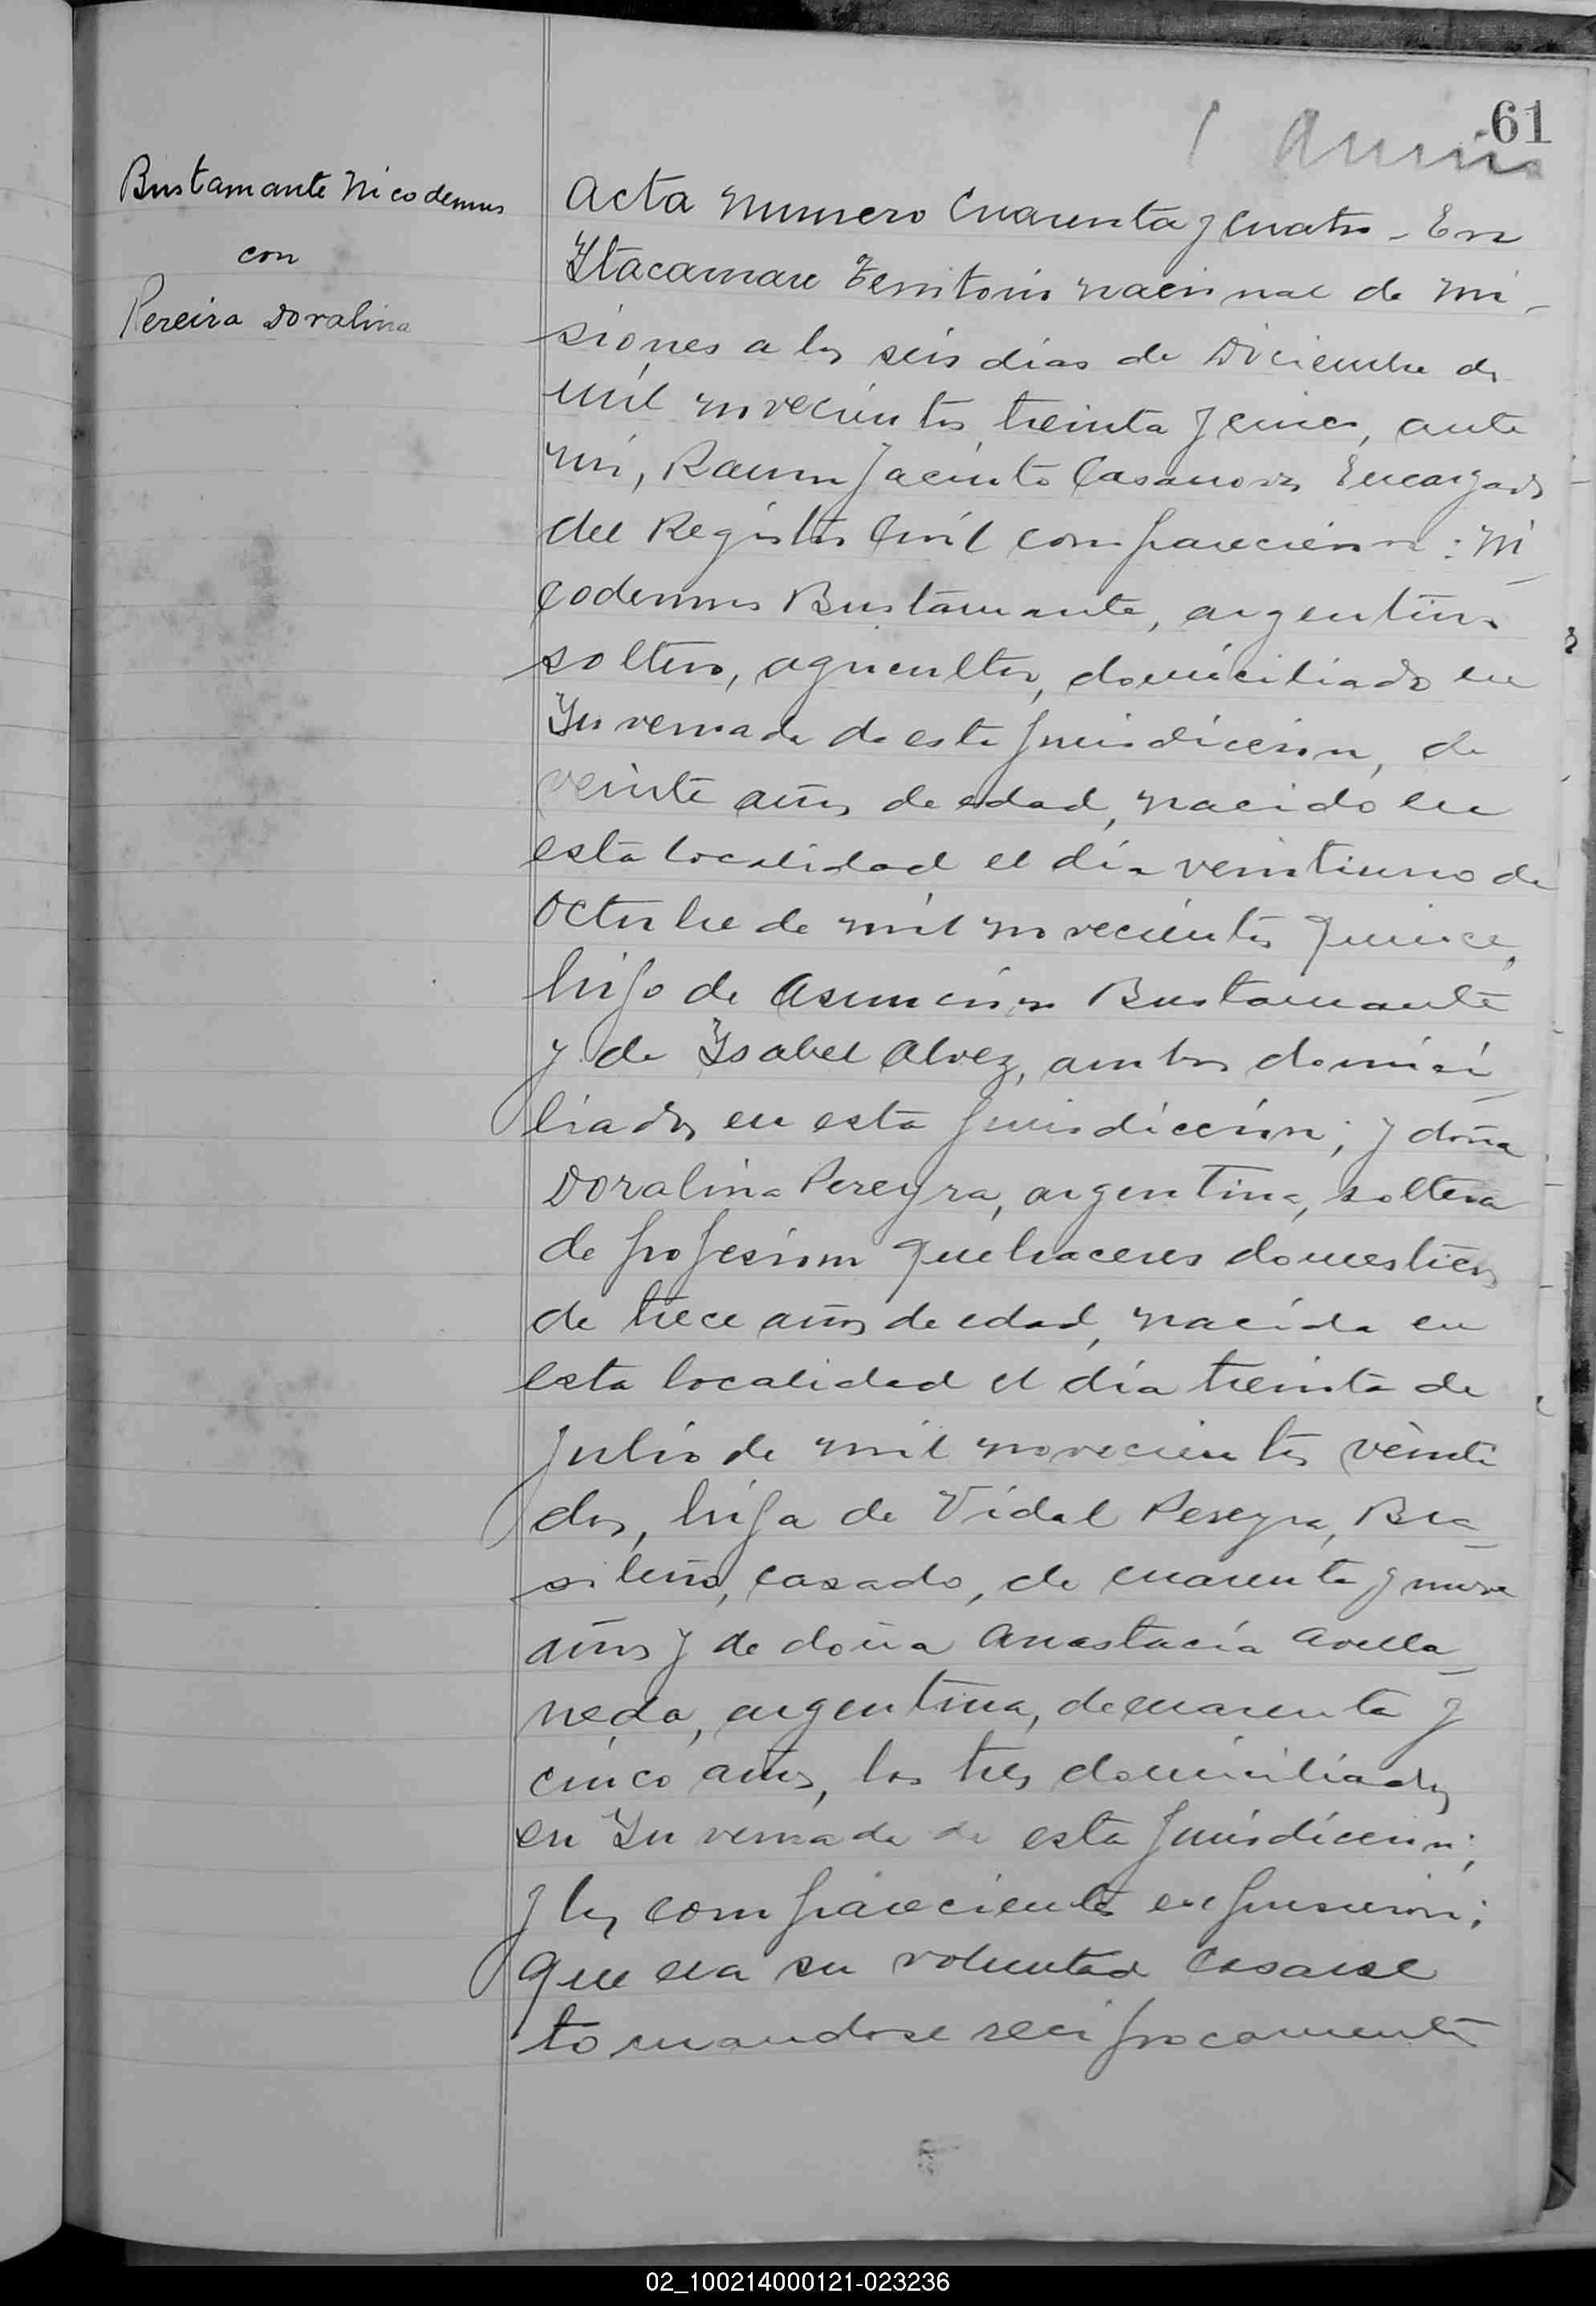 61
Bustamante Nicodemus
con
Pereira Doralina
Acta numero Cuarenta y cuatro - En
Ytacaruare Territorio nacional de Mi-
siones a los seis dias de Diciembre de
mil novecientos treinta y cinco, ante
mi, Ramon Jacinto Casanova Encargado
del Registro Civil comparecieron: Ni-
codemus Bustamante, argentino
soltero, agricultor, domiciliado en
Invernada de esta Jurisdiccion, de
veinte años de edad, nacido en
esta localidad el dia veintiuno de
Octubre de mil novecientos quince,
hijo de Asuncion Bustamante
y de Ysabel Alvez, ambos domici-
liados en esta jurisdiccion; y doña
Doralina Pereyra, argentina, soltera
de profesion quehaceres domesticos
de trece años de edad, nacida en
esta localidad el dia treinta de
Julio de mil novecientos veinti
dos, hija de Vidal Pereyra, Bra-
sileño, casado, de cuarenta y nueve
años y de doña Anastacia Avella-
neda, argentina, de cuarenta y
cinco años, los tres domiciliados
en Invernada de esta Jurisdiccion;
y los comparecientes expusieron;
que era su voluntad casarse
tomandose reciprocamente
02_100214000121-023236